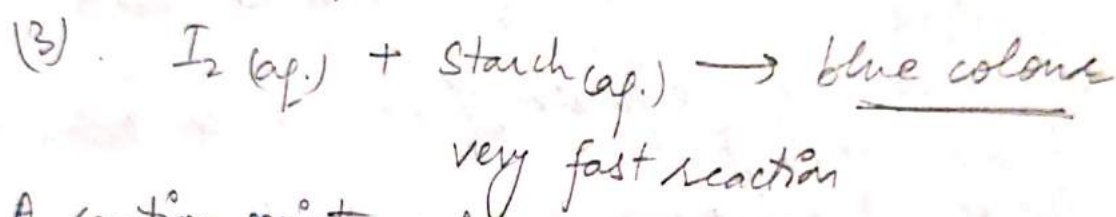 (3). I₂ (aq.) + Starch (aq.) → blue colour
very fast reaction
A